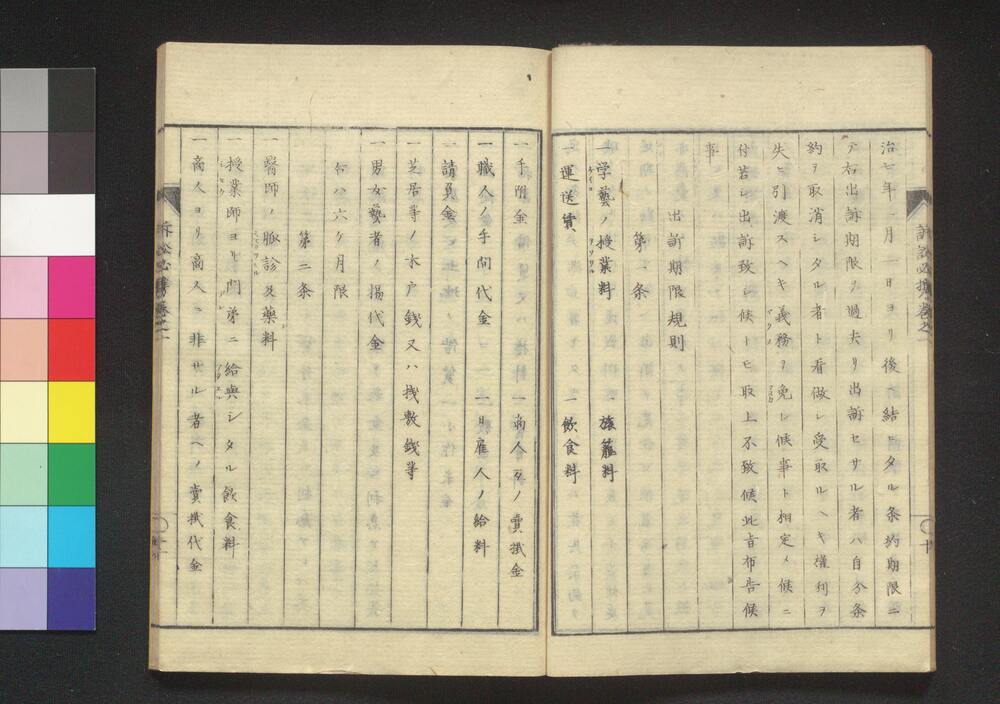 治七年一月一日ヨリ後ニ結ヒタル条約期限ニ
テ右出訴期限ヲ過去リ出訴セサル者ハ自分条
約ヲ取消シタル者ト看做シ受取ルヘキ権利ヲ
失ヒ引渡スヘキ義務ヲ免レ候事ト相定メ候ニ
付若シ出訴致シ候トモ取上不致候此旨布告候
事
出訴期限規則
第一条
一学藝ノ授業料 一旅籠料
一運送賃 一飲食料
一手附金 一商人互ノ賣掛金
一職人ノ手間代金 一日雇人ノ給料
一請負金
一芝居等ノ木戸錢又ハ桟敷錢等
一男女藝者ノ揚代金
右ハ六ケ月限
第二条
一醫師ノ脈診及藥料
一授業師ヨリ門弟ニ給與シタル飲食料
一商人ヨリ商人ニ非サル者ヘノ賣掛代金
訴訟必携巻之一